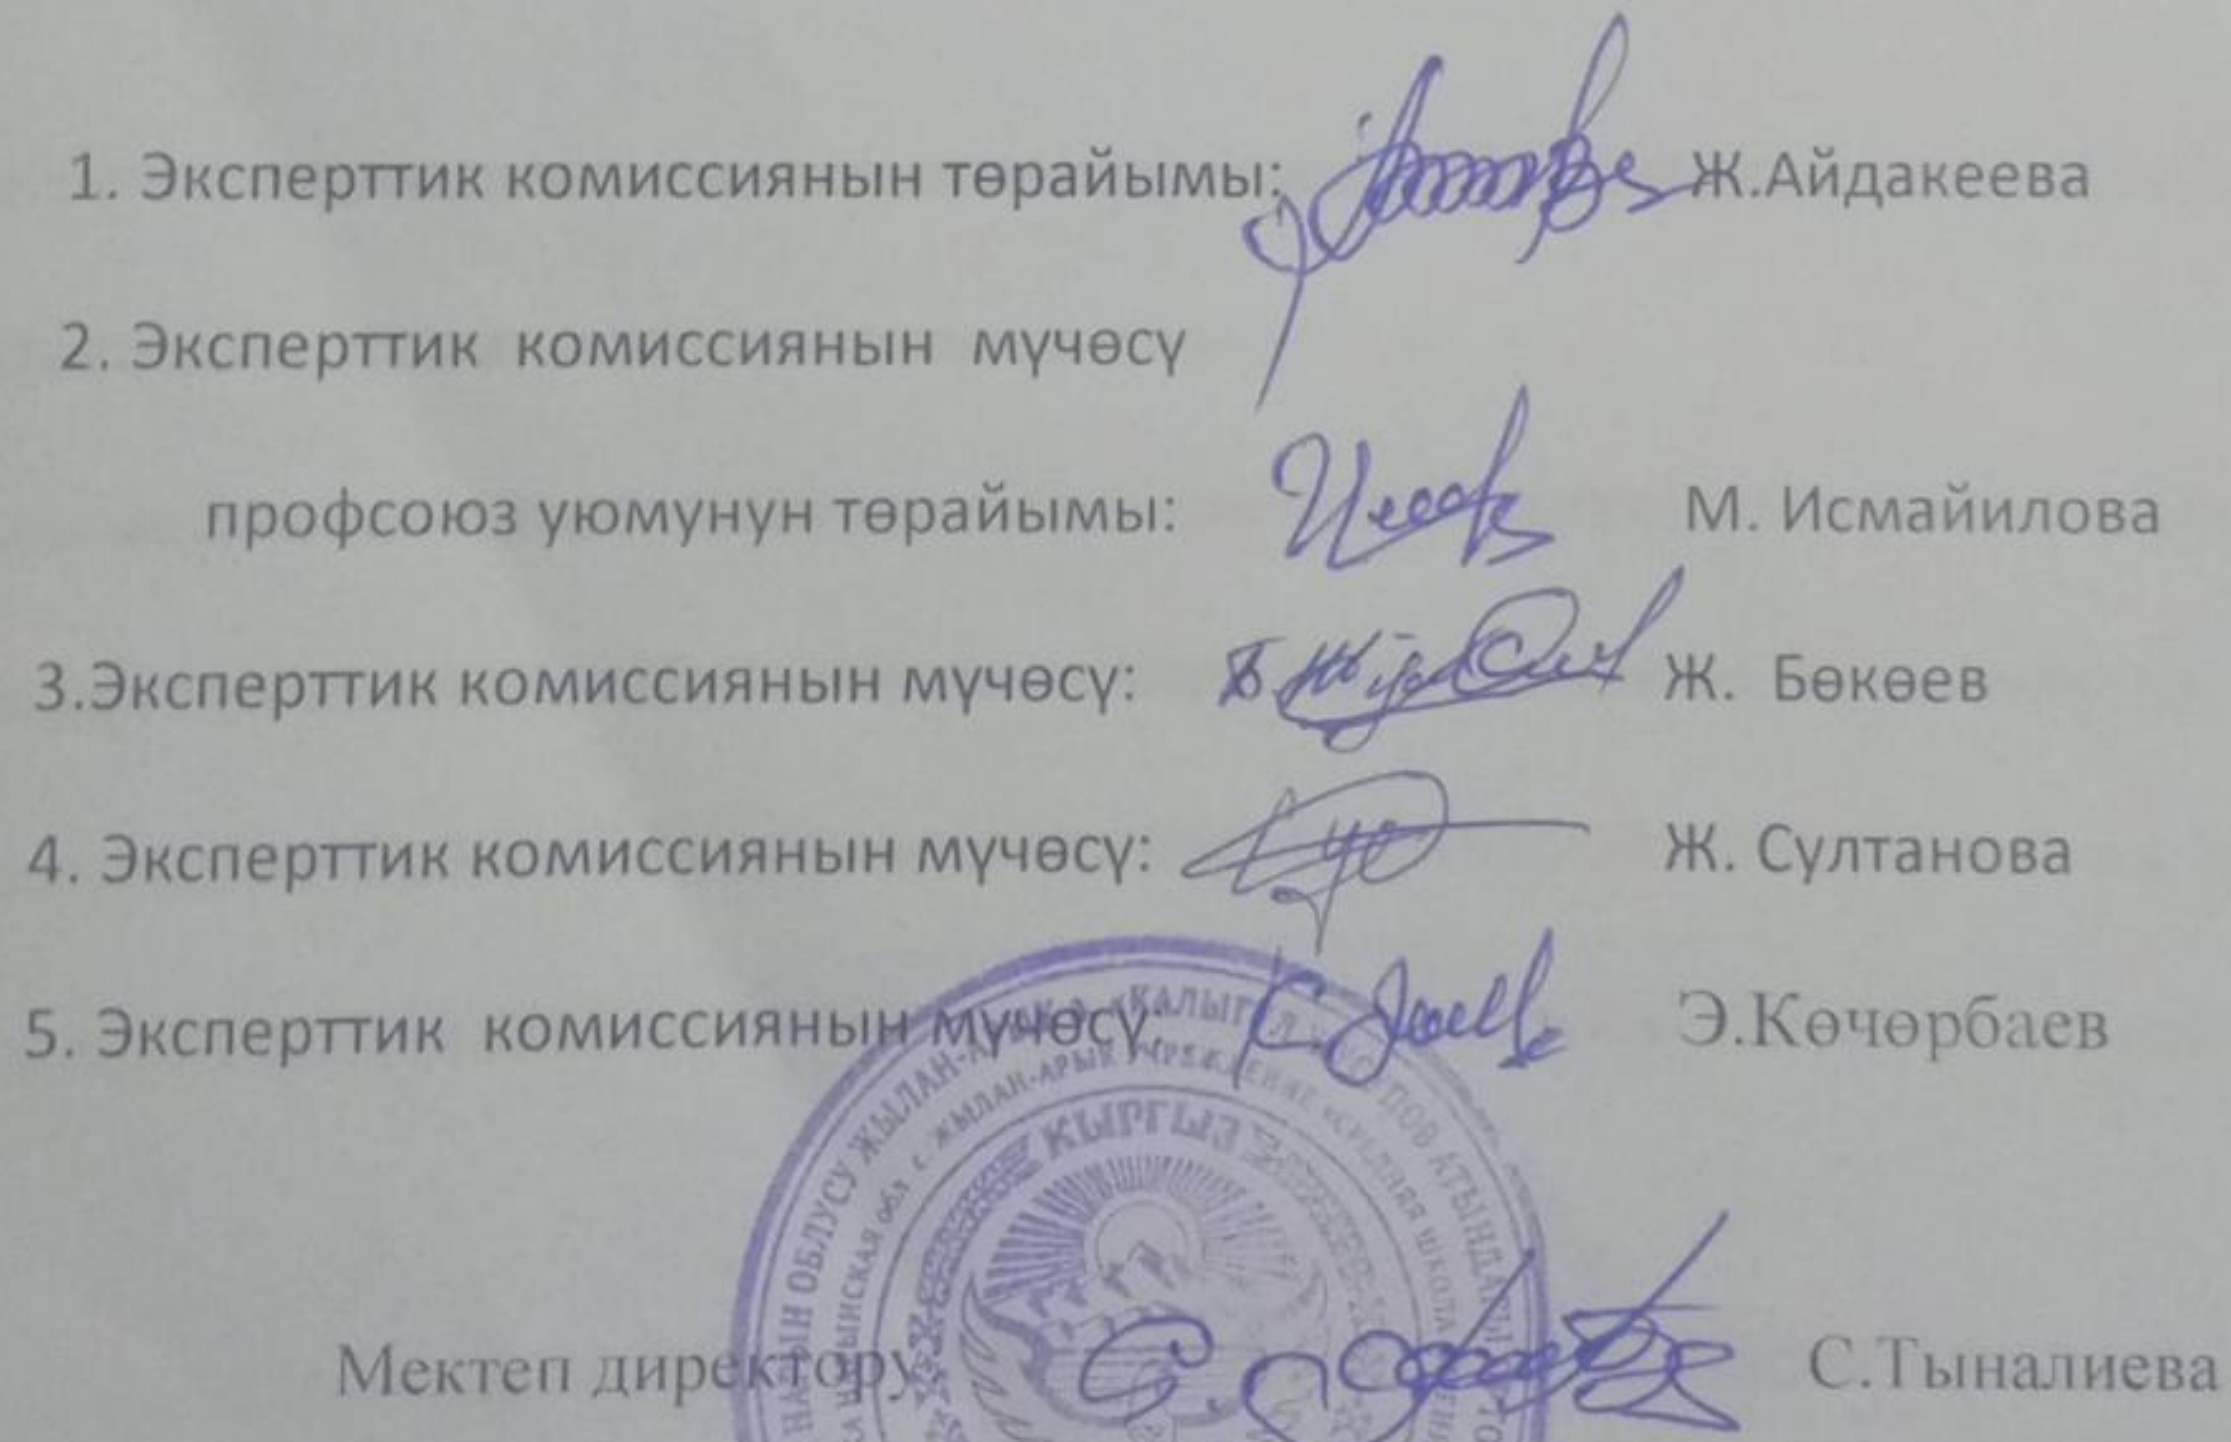 1. Эксперттик комиссиянын төрайымы: Ж.Айдакеева
2. Эксперттик комиссиянын мүчөсү
профсоюз уюмунун төрайымы: М. Исмайилова
3.Эксперттик комиссиянын мүчөсү: Ж. Бөкөев
4. Эксперттик комиссиянын мүчөсү: Ж. Султанова
5. Эксперттик комиссиянын мүчөсү Э.Көчөрбаев
Мектеп директору С.Тыналиева
НАРЫН ОБЛУСУ ЖЫЛАН-АРЫК
с. ЖЫЛАН-АРЫК УЧРЕЖДЕНИЕ «СРЕДНЯЯ ШКОЛА
КЫРГЫЗ